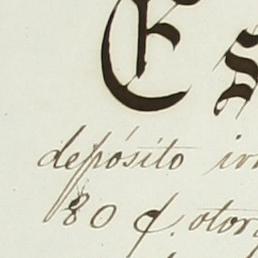 Es
depósito irr
80 q. otor